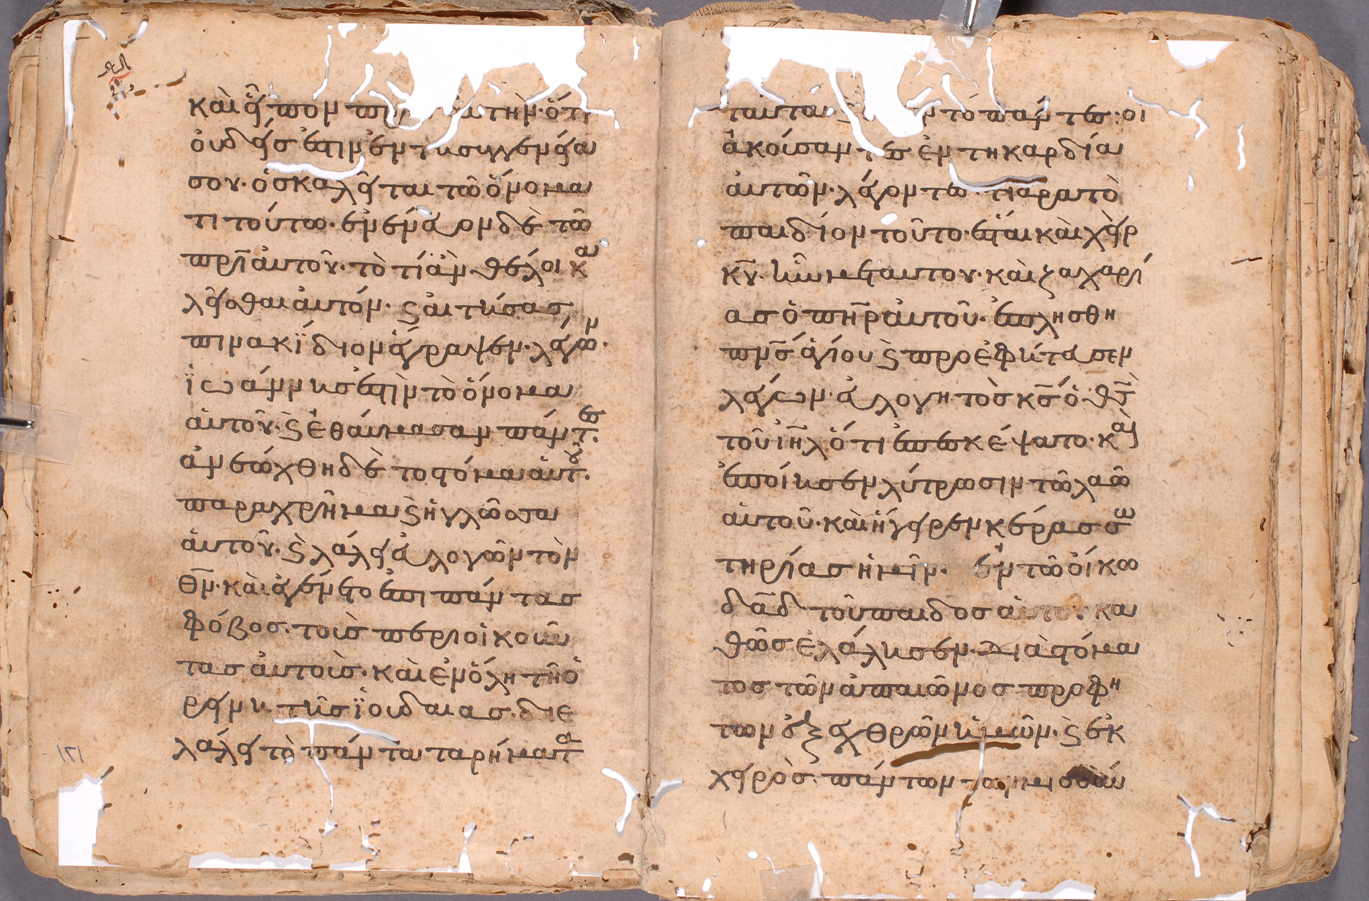 καὶ εἶπον πρ αυτὴν· ὅτι
οὐδεὶσ ἐστὶν ἐν τῆ συγγενεία
σου· ὃσ καλεῖται τῶ ὀνόμα
τι τούτω· ἐνένευον δὲ τῶ
πρὶ αὐτοῦ· τὸ τί ἂν θέλοι κα
λεῖσθαι αὐτόν· ϛ αἰτήσασ
πινακίδιον ἔγραψεν· λέγων·
ἰωάννησ ἐστὶν τὸ ὄνομα
αὐτοῦ· ϛ ἐθαύμασαν πάντες·
ἀνεώχθη δὲ το στόμα αὐτοῦ·
παραχρῆμα ϛ ἡ γλῶσσα
αὐτοῦ· ϛ λάλει εὐλογῶν τὸν
θν· καὶ ἐγένετο ἐπι πάντασ
φόβοσ· τοὺσ περιοικοῦν
τασ αὐτοὺσ· καὶ ἐν ὅλη τῆ ὀ
ρεινῆ τῆσ ἰουδαίασ· διε
λαλεῖτο πάντα τα ρήματα
ταυτα· ντο πάντεσ· οἱ
ἀκούσαντεσ ἐν τη καρδία
αὐτῶν· λέγοντεσ· τί ἄρα τὸ
παιδίον τοῦτο· ἔσται καὶ χεὶρ
κυ· ἦν μεταυτου· καὶ ζαχαρί
ασ ὁ πηρ αὐτοῦ· ἐπλησθη
πνσ ἁγίου ϛ προεφήτευσεν
λέγων· εὐλογητὸσ κσ ὁ θσ
τοῦ ιηλ· ὅτι ἐπεσκέψατο· καὶ
ἐποίησεν λύτρωσιν τῶ λαῶ
αὐτοῦ· καὶ ἤγειρεν κέρασ σω
τηρίασ ἡμῖν· ἐν τῶ οἴκω
δαδ τοῦ παιδοσ αὐτοῦ κα
θῶσ ἐλάλησεν· διὰ στόμα
τοσ τῶν ἀπαιῶνοσ προφη
των ἐξ ἐχθρῶν ἡμῶν· ϛ ἐκ
χειρὸσ πάντων τῶν μισούν